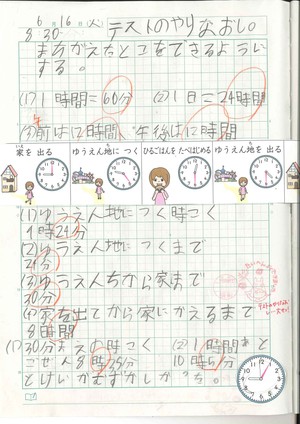 6月16日(人)
8:30
テストのやりなおし。
まちがえたとこをできるように
する。
(1)1時間=60分 (2)1日=24時間
(3)前は12時間、午後は12時間
家を出る ゆうえん地につく ひるごはんをたべはじめる ゆうえん地を出る
(1)ゆうえん地につく時こく
9時24分
(2)ゆうえん地につくまで
24分
(3)ゆうえんちから家まで
30分
(4)家を出てから家にかえるまで
8時間
(1)30分まえの時こく (2)1時間あと
ごぜん8時35分 10時5分
とけいがむずかしかった。